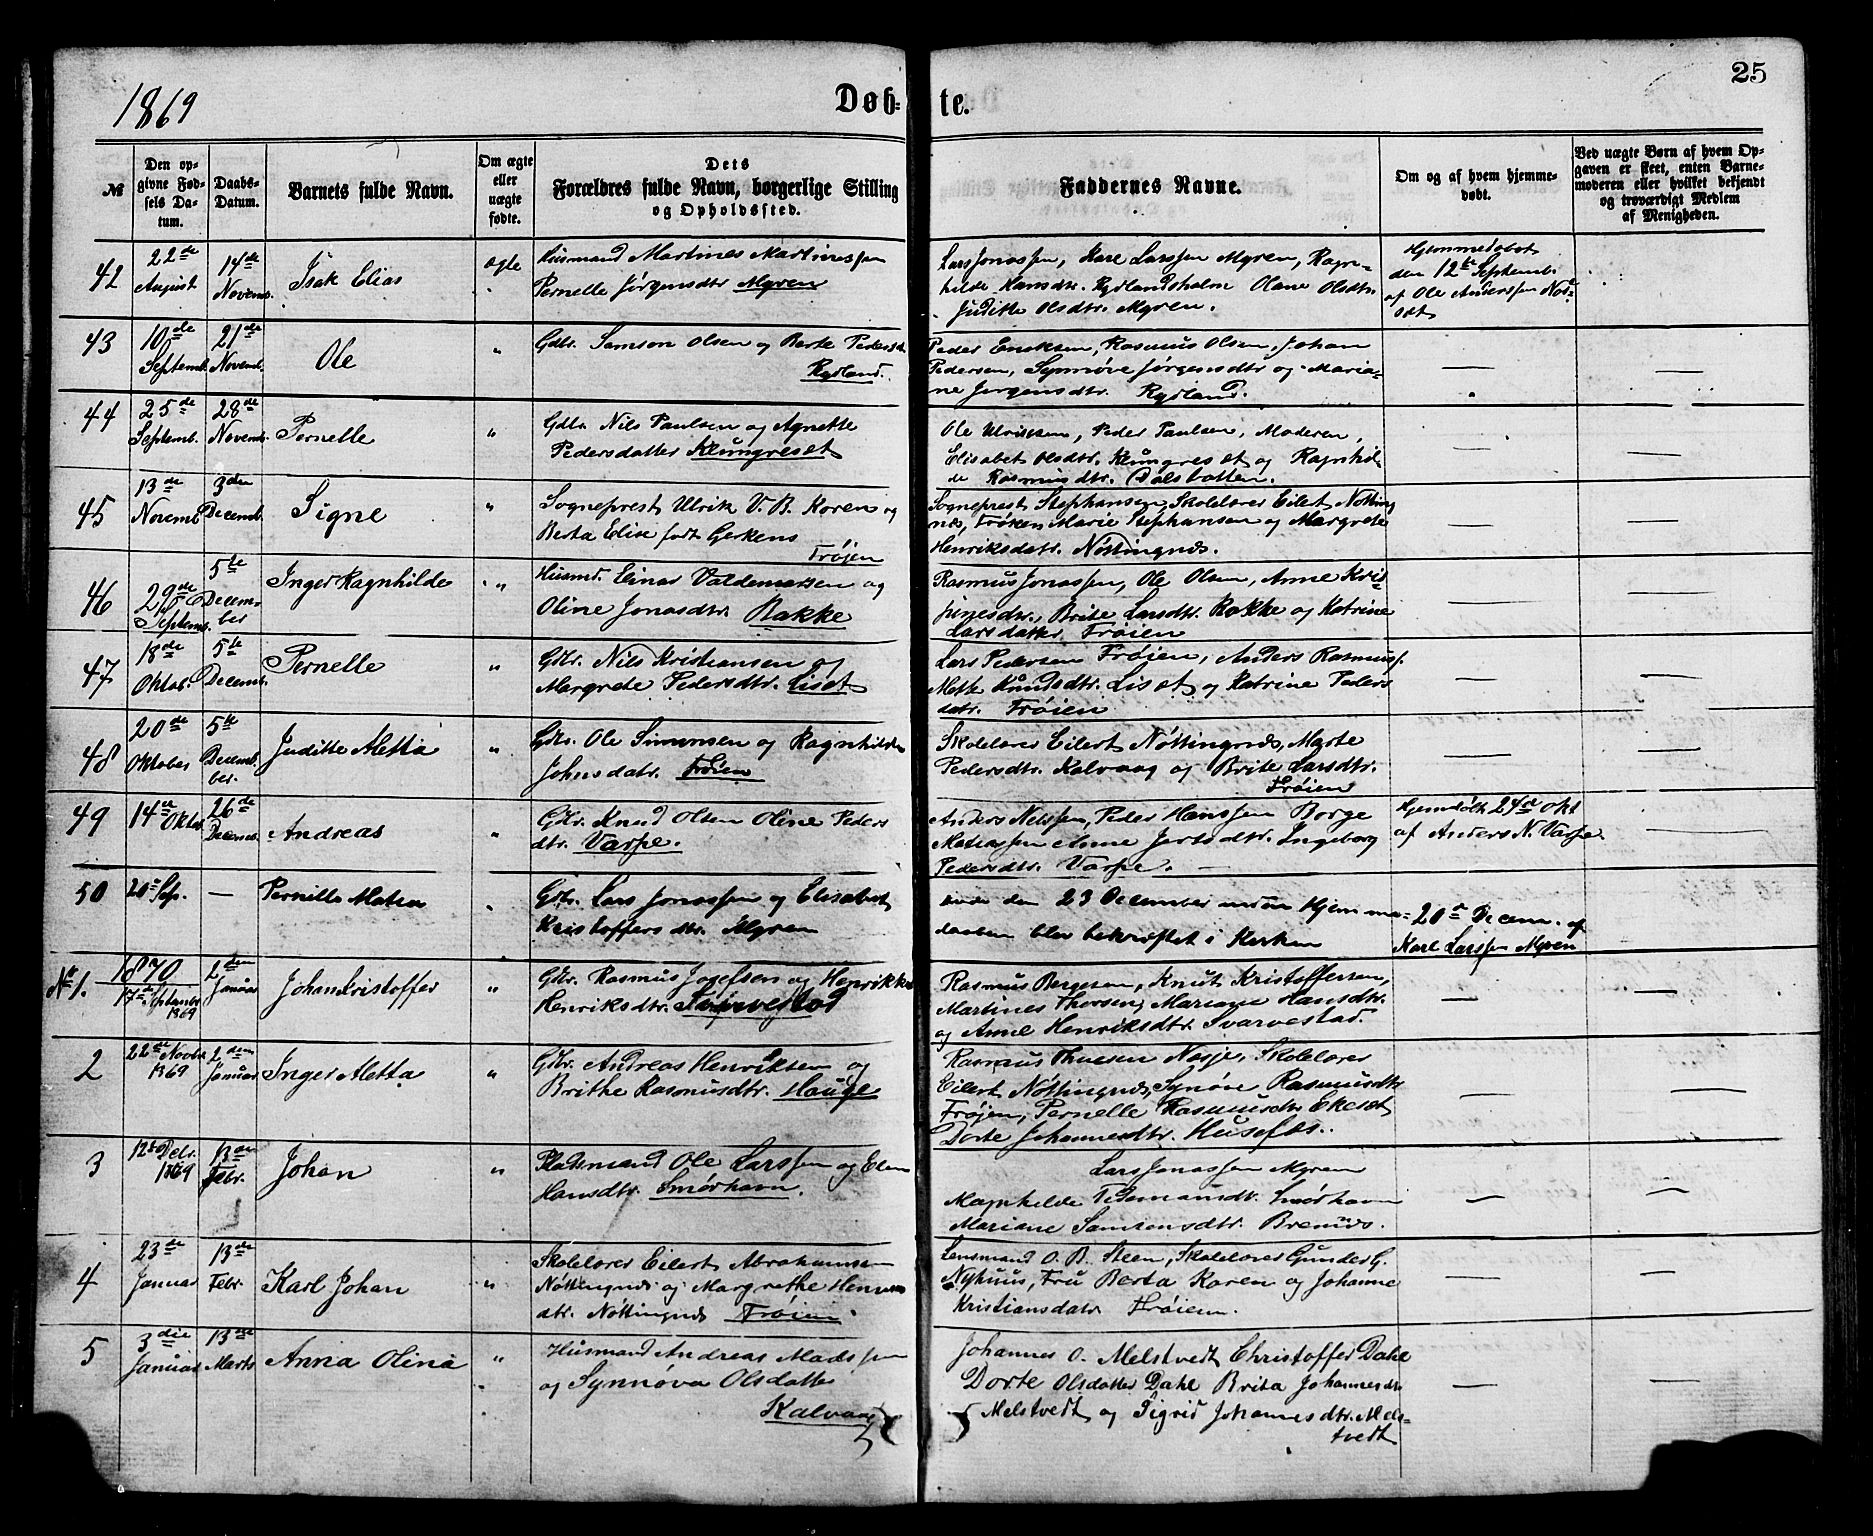 1869
Døb-
te.
25
№
Den op-
givne Fød-
sels Da-
tum.
Daabs-
Datum.
Barnets fulde Navn.
Om ægte
eller
uægte
fødte.
Dets
Forældres fulde Navn, borgerlige Stilling
og Opholdssted.
Faddernes Navne.
Om og af hvem hjemme-
døbt.
Ved uægte Børn af hvem Op-
gaven er skeet, enten Barne-
moderen eller hvilket bekjendt
og troværdigt Medlem
af Menigheden.
42
22de
August
14de
Novemb.
Isak Elias
ægte
Husmand Martines Martinussen
Pernelle Jørgensdtr Myren
Lars Jonassen, Kare Larssen Myren, Ragn-
hilde Hansdtr. Rydlandsholm Oline Olsdtr
Juditte Olsdtr. Myren.
Hjemmedøbt
den 12te Septemb.
af Ole Anderssen Nord-
set
43
10de
Septemb.
21de
Novemb.
Ole
"
Gdbr. Samson Olsen og Berte Pedersdtr
Rydland.
Peder Ericksen, Rasmus Olsen, Johan
Pedersen, Synnøve Jørgensdtr og Maria-
ne Jørgensdtr. Rydland.
44
25de
Septemb.
28de
Novemb.
Pernelle
"
Gdbr. Nils Paulsen og Agnette
Pedersdatter Klungreset
Ole Ulrikssen, Peder Paulsen, Moderen,
Elisabet Olsdtr. Klungreset og Ragnhil-
de Rasmusdtr. Dalsbotten.
45
13de
Novemb.
3die
Decemb.
Signe
"
Sogneprest Ulrik V. B. Koren og
Berta Elise født Gerkens
Frøjen
Sogneprest Stephansen, Skolelærer Eilert Nøtting
næs, Frøken Marie Stephansen og Margrete
Henriksdatr. Nøttingnæs.
46
29de
Septemb.
5te
Decem-
ber
Inger Ragnhilde
"
Husmd. Einar Valdemarsen og
Oline Jonasdtr. Bakke
Rasmus Jonassen, Ole Olsen, Anne Kris-
tinesdtr., Brite Larsdtr. Bakke og Katrine
Larsdatter Frøien
47
18de
Oktob.
5te
Decemb.
Pernelle
"
Gdbr. Nils Kristiansen og
Margrete Pedersdtr. Liset
Lars Pedersen Frøien, Anders Rasmuss.
Mette Knudsdtr. Liset og Katrine Peders
datr. Frøien
48
20de
Oktober
5te
Decemb.
ber.
Juditte Aletta
"
Gdbr. Ole Simonsen og Ragnhilde
Johnsdatr. Frøien
Skolelærer Eilert Nøttingnæs, Myrte
Pedersdtr. Kalvaag og Brite Larsdtr.
Frøien
49
14de Oktob.
26de
Decemb.
Andreas
"
Gdbr. Knud Olsen Oline Peders
dtr. Varpe.
Anders Nilssen, Peder Hanssen Borge
Matiassen Anne Jertsdtr. Ingeborg
Pedersdtr. Varpe.
Hjemdøbt 24de Okt
af Anders N. Varpe
50
20de Sep.
—
Pernille Matea
"
Gdbr. Lars Jonassen og Elisabet
Kristoffersdtr. Myren
døde den 23 December inden Hjemme-
daaben blev bekræftet i Kirken
20de Decem. af
Karl Larssen Myren
1870
№ 1.
17de Septembr
1869
2den
Januar
Johan Kristoffer
"
Gdbr. Rasmus Josefsen og Henrikke
Henriksdtr. Svarvestad
Rasmus Bergesen, Knut Kristoffersen,
Martines Thorsen, Mariane Hansdtr.
og Anne Henriksdtr. Svarvestad.
2
22de Novbr
1869
2den
Januar
Inger Aletta
"
Gdbr. Andreas Henriksen og
Brithe Rasmusdtr. Hauge
Rasmus Thuesen Nasje, Skolelærer
Eilert Nøttingnæs, Synøve Rasmusdtr
Frøien, Pernelle Rasmusdtr Ekeset
Dorte Johannesdtr. Husefæs.
3
1869
13de
Febr.
Johan
"
Pladsmand Ole Larssen og Elen
Hansdtr. Smørhavn.
Lars Jonassen Myren
Magnhilde Tidemansdtr. Smørhavn
Mariane Samsonsdtr. Bremnæs.
4
23de
Januar
13de
Febr.
Karl Johan
"
Skolelærer Eilert Abrahamsen
Nøttingnæs og Margrethe Henriks
dtr. Nøttingnæs Frøien.
Lensmand O. B. Steen, Skolelærer Gunder G.
Nyhuus, Fru Berta Koren og Johanne
Kristiansdatr Frøien.
5
3die
Januar
13de
Marts
Anna Olina
"
Husmand Andreas Madssen
og Synnøva Olsdatter
Kalvaag
Johannes O. Melstvedt Christoffer Dahl
Dorte Olsdatter Dahl Brita Johannesdtr
Melstvedt og Sigrid Johannesdtr. Mels-
tvedt